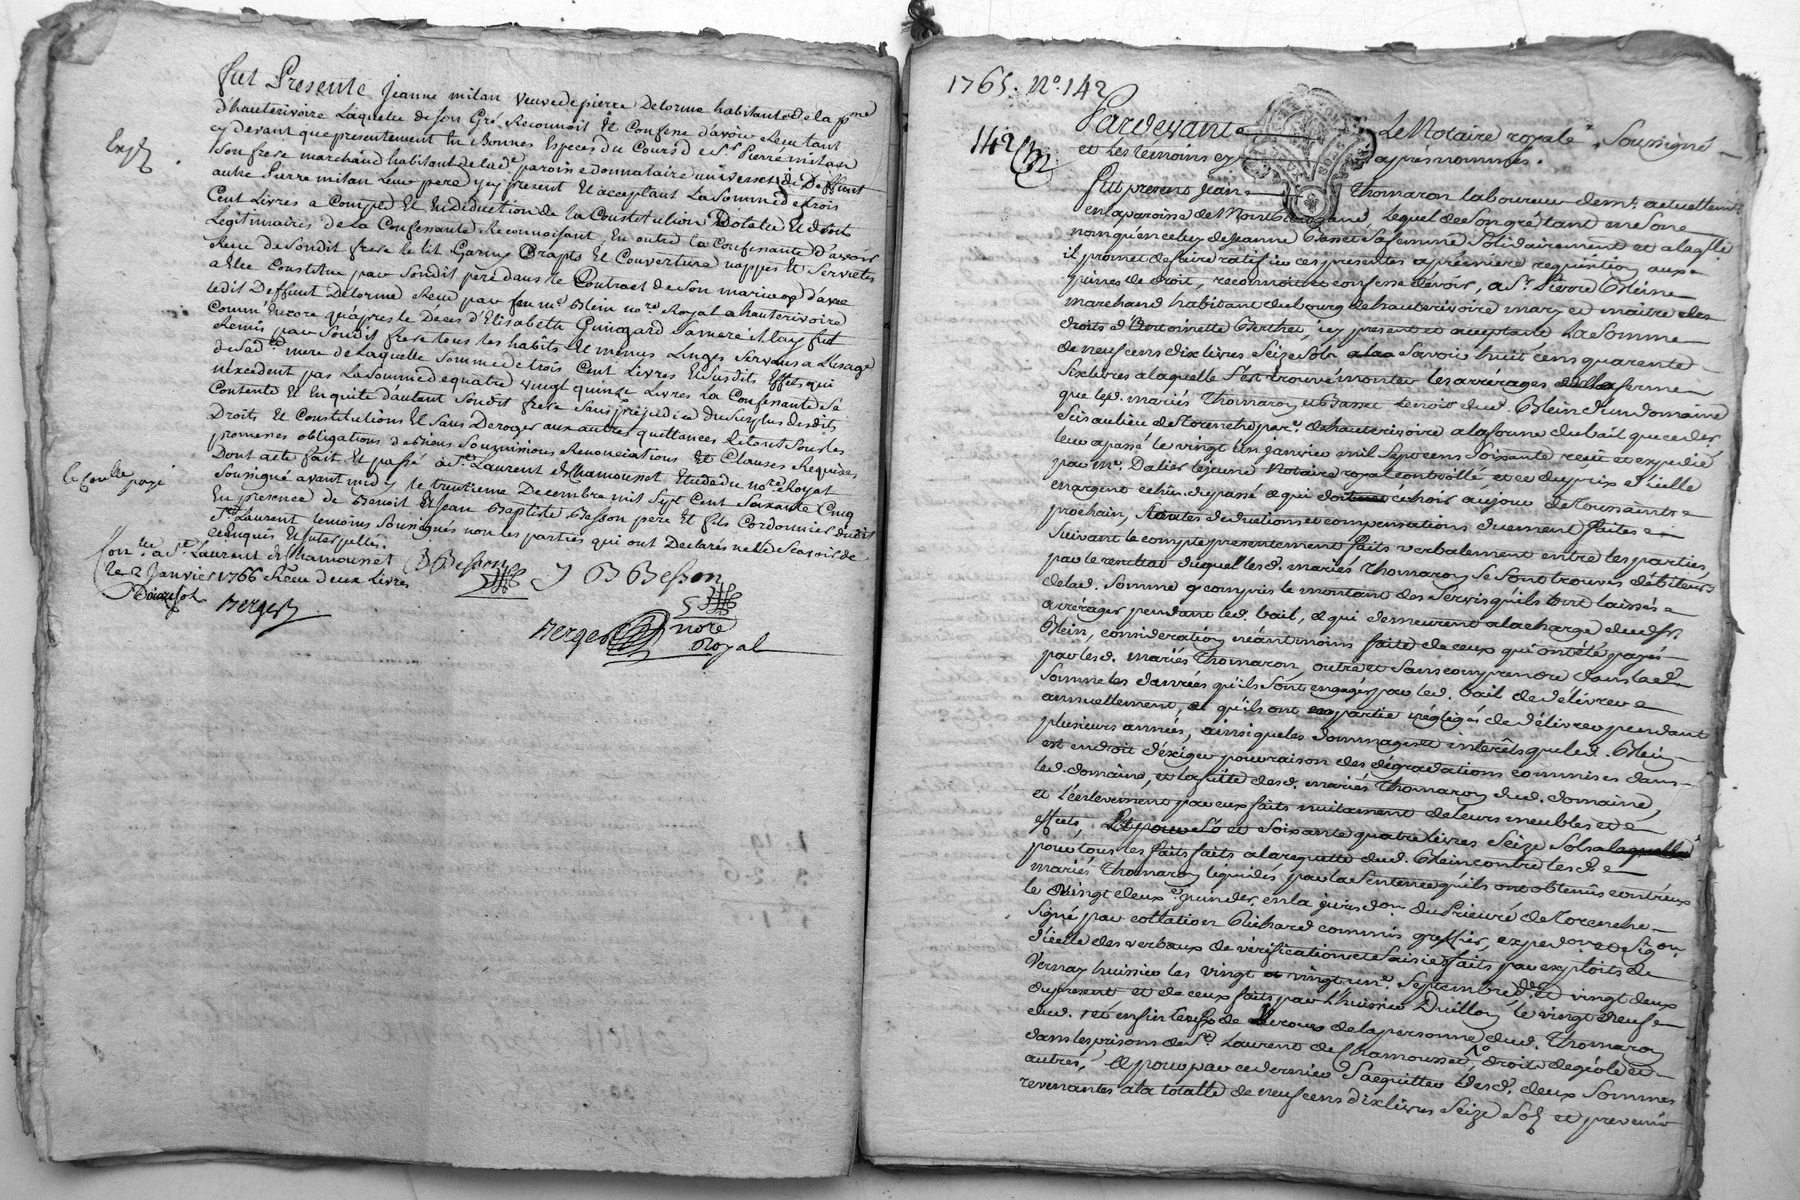 fut Presente Jeanne milan veuve de pierre Delorme habitante de la p.ne
d'hauterivoire Laquelle de son Gré Reconnoit Et Confesse d'avoir Reçu tant
cy devant que presentement En Bonnes Especes du Cours de S.r Pierre milan
Son frere marchand habitant de lad.e paroisse donnataire universel de Deffunt
autre Pierre milan Leur pere y cy present Et acceptant La Somme de trois
Cent Livres a Compte Et En deduction de la Constitution Dotalle Et droits
Legitimaires de la Confessante Reconnoissant En outre la Confessante d'avoir
Reçu de Soudit frere le lit Garny Draps Et Couverture nappes Et Serviettes
a Elle Constitué par Soudit pere dans le Contract de Son mariage d'avec
ledit Deffunt Delorme Reçu par feu m.e Blein no.re Royal a hauterivoire
Comm'Encore qu'apres le Deces d'Elisabeth Guinogard Sa mere il luy fut
Remis par Soudit frere tous les habits Et menus Linges Servans a L'usage
de Sad.e mere de Laquelle Somme de trois Cent Livres Et Susdits Effets qui
n'excedent pas La Somme de quatre vingt quinze Livres La Confessante Se
Contente Et En quite d'autant Soudit frere Sans prejudice du Surplus desdits
Droits Et Constitutions Et Sans Deroger aux autres quittances Et tout Sous les
promesses obligations dections Soumissions Renonciations Et Clauses Requises
Dont acte fait Et passé à S.t Laurent de Chamousset Etude du no.re Royal
Soussigné avant midy le trentieme Decembre mil Sept Cent Soixante Cinq
En presence de Benoit Et Jean Baptiste Besson pere Et fils Cordonniers dudit
S.t Laurent temoins Soussignés non les parties qui ont Declarés ne le Scavoir de
ce Enquis Et Interpellés.
le Con.lle payé
Con.lle à S.t Laurent de Chamousset
le 2 Janvier 1766 Reçu deux Livres
Berger
B Besson
J B Besson
Berger
no.re
Royal
1765. N.o 142
142
Pardevant Le Notaire royal Soussigné
et Les témoins cy après nommés.
Fut present Jean Thomaron laboureur dem.t actuellem.t
en la paroisse de Montbrisson lequel de Son gré tant en Son
nom qu'en celuy de Jeanne Basset Sa femme Solidairement et a laq.lle
il promet de faire ratifier ces presentes a premiere requisition aux
peines de droit, reconnoit et confesse devoir, a S.r Pierre Blein
marchand habitant du bourg de hauterivoire mary et maitre des
droits d'Antoinette Berthet, icy present et acceptant La Somme
de neuf cens dix livres Seize Sols Savoir huit cens quarente
Six livres a laquelle S'est trouvé monter les arrérages de la ferme
que led. mariés Thomaron et Basset tenoit dud. Blein d'un domaine
Sis au lieu de Rorenche par.e de hauterivoire a la forme du bail que ce der.
leur a passé le vingt un janvier mil Sept cens Soixante reçu et expedié
par M.e Dalier le jeune Notaire royal controllé et ce du prix d'icelle
en argent echu du passé et qui echoir au jour de Toussaints
prochain, toutes deductions et compensations duement faites
Suivant le compte presentement fait verbalement entre les parties,
par le resultat duquel les d. mariés Thomaron Se Sont trouvés débiteurs
de lad. Somme y compris le montant des Servis qu'ils ont laissés
arrérager pendant led. bail, et qui demeurent a la charge dud. S.r
Blein, consideration néantmoins faite de ceux qui ont été payés
par les d. mariés Thomaron, outre et Sans comprendre dans lad.
Somme les danrées qu'ils Sont engagés par led. bail de délivrer
annuellement, et qu'ils ont en partie négligés de délivrer pendant
plusieurs années, ainsi que les dommages et interêts que led. Blein
est en droit d'exiger pour raison des dégradations commises dans
led. domaine, et la fuitte des d. mariés Thomaron dud. domaine,
et l'enlevement par eux faits nuitament de leurs meubles et
effets, Et et Soixante quatre livres Seize Sols
pour tous les frais faits a la requette dud. Blein contre les d.
mariés Thomaron liquidés par la Sentence qu'ils ont obtenüe contr'eux
le vingt deux juin der. en la jurisd.on du Prieuré de Rorenche
Signé par collation Richard commis greffier, exped.on et Sig.on
d'icelle des verbaux de vérification et Saisies faits par exploits de
Vernay huissier les vingt et vingt un.e Septembre et vingt deux
du present et de ceux faits par l'huissier Duillon le vingt neuf
dud. et enfin de l'ecroue de la personne dud. Thomaron
dans les prisons de S.t Laurent de Chamousset, droits de géole et
autres, Et pour par ce dernier S'acquitter desd. deux Sommes
revenantes a la totalle de neuf cens dix livres Seize Sols et prevenir